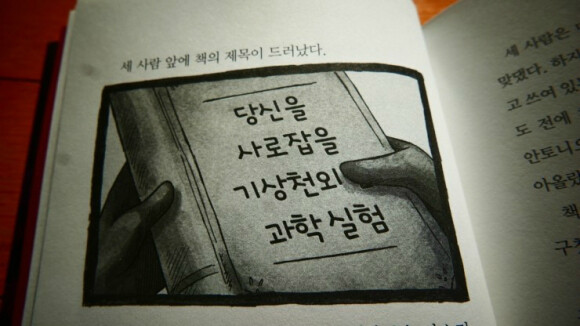 세 사람 앞에 책의 제목이 드러났다.
당신을
사로잡을
기상천외
과학 실험
세 사람은
맞댔다. 하지
고 쓰여 있
도 전에
안토니오
아올랐
책
구